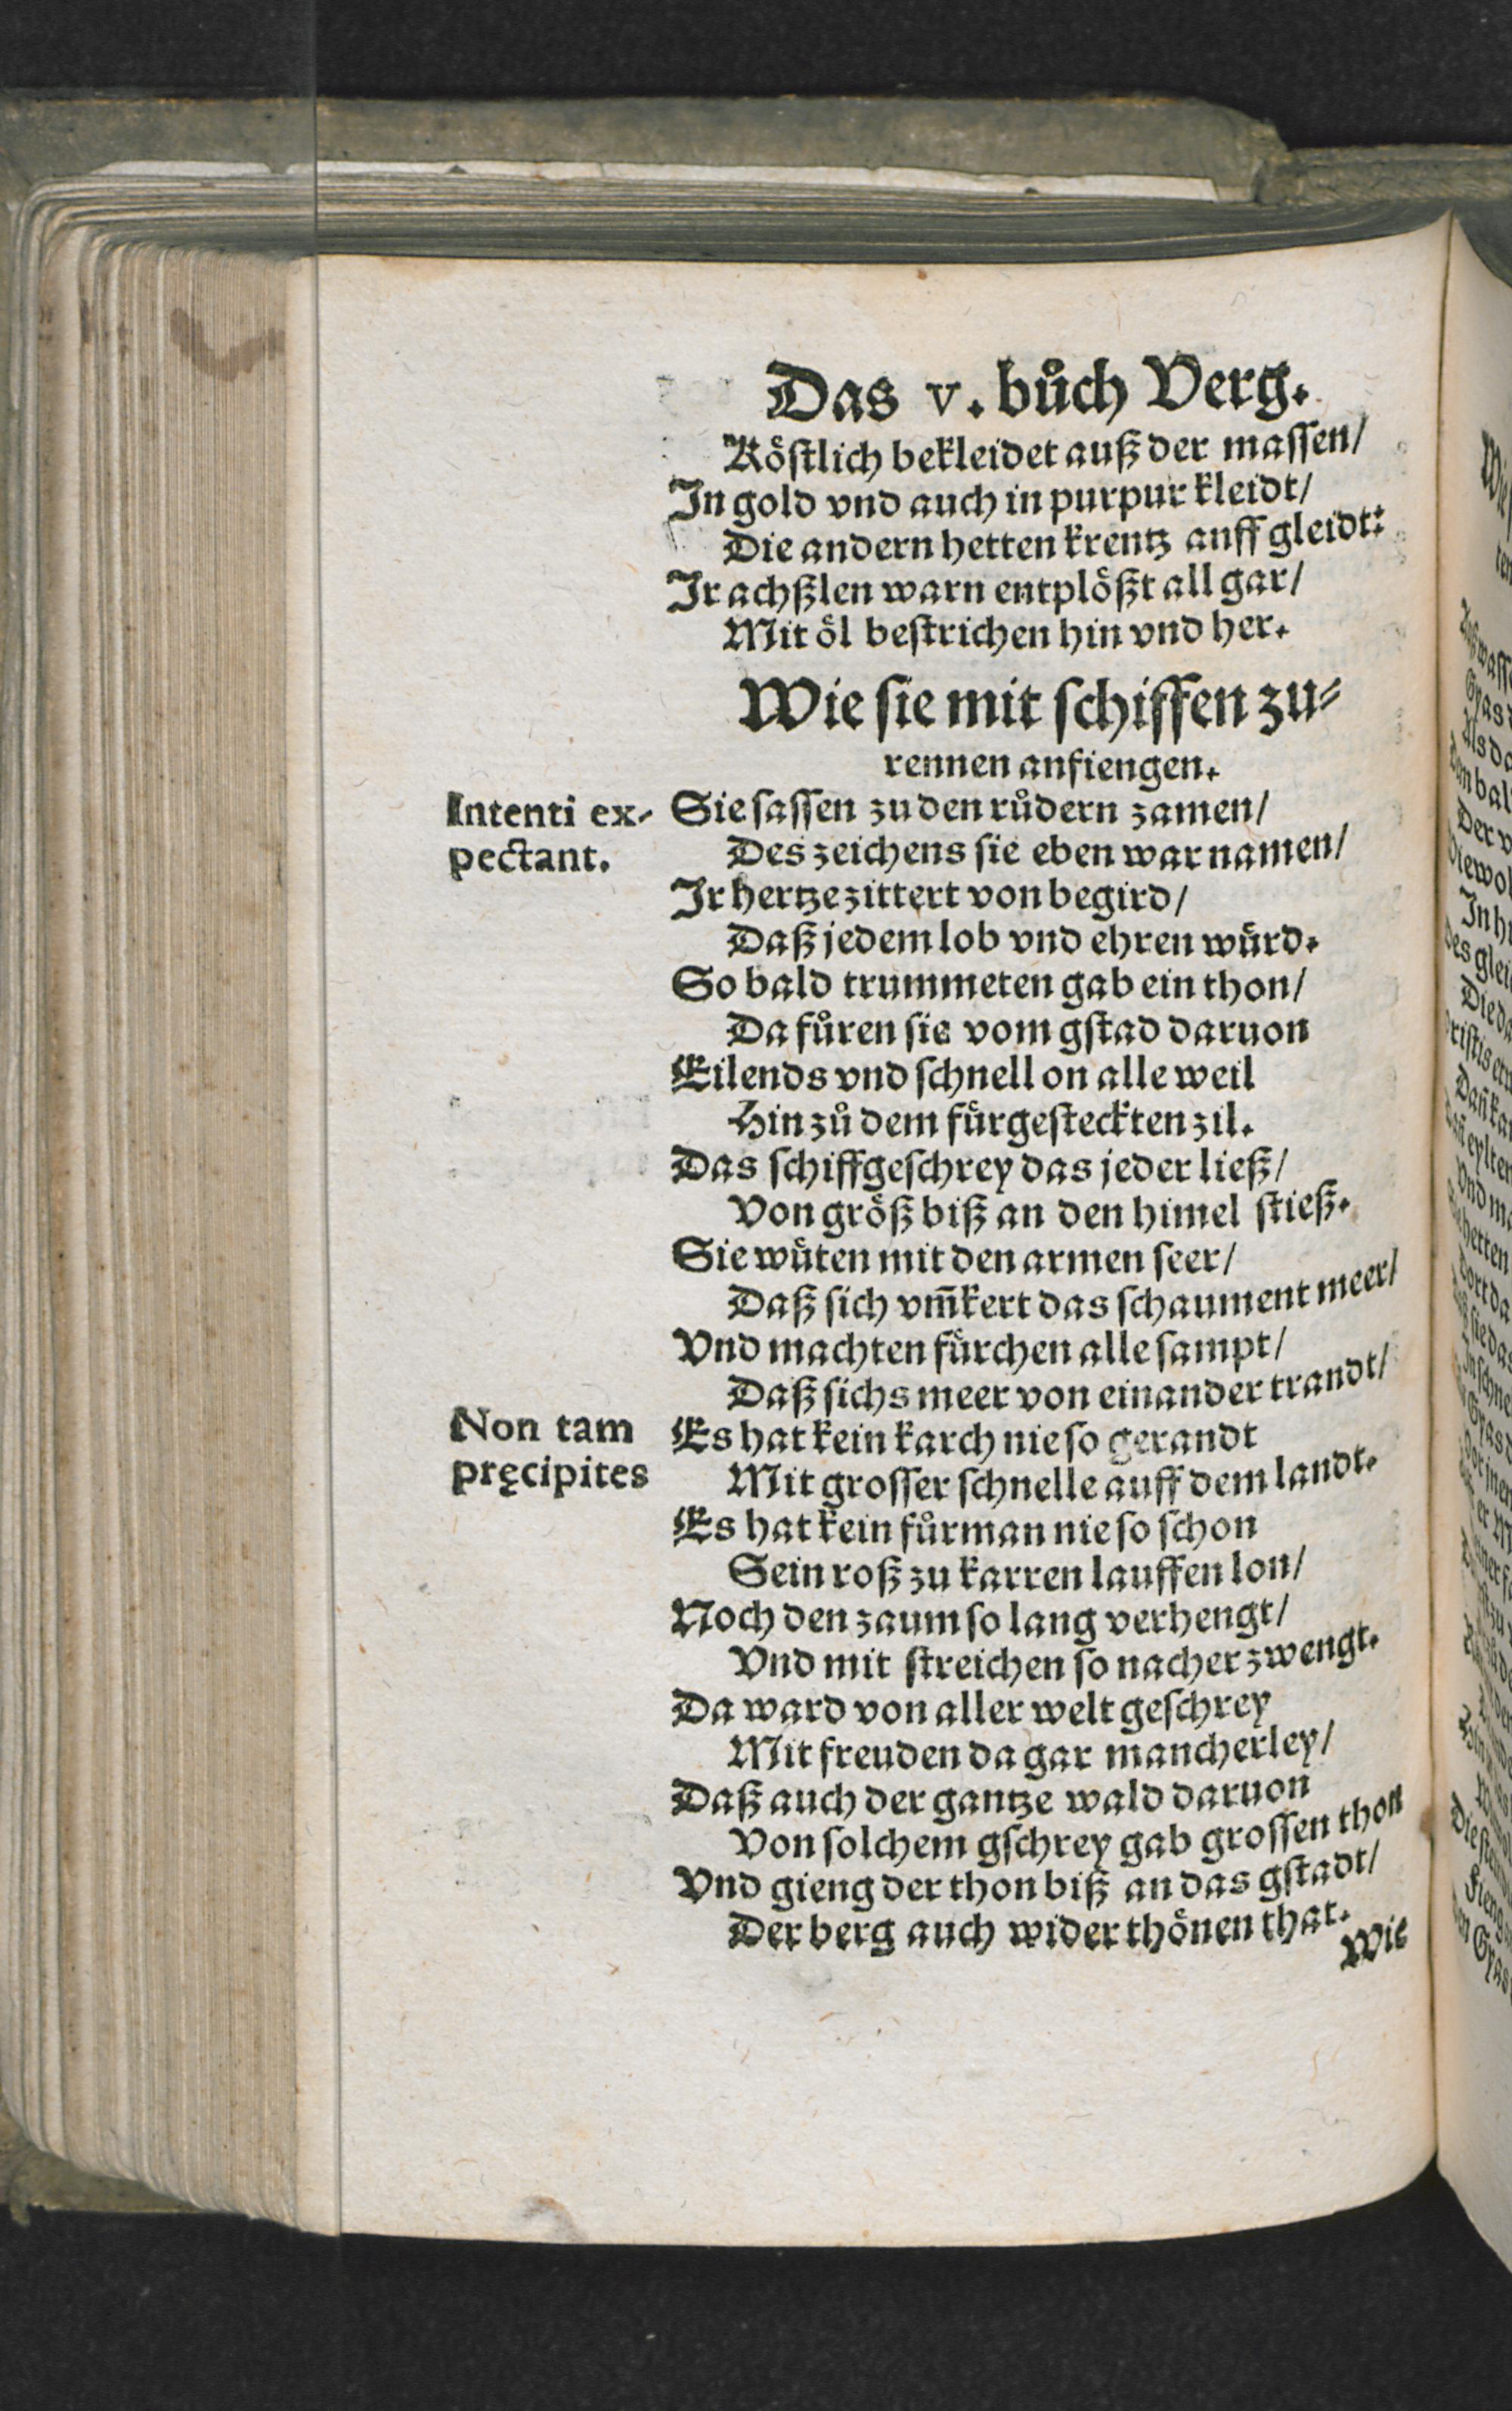 Das v. bůch Verg.
Köſtlich bekleidet auß der maſſen/
In gold vnd auch in purpur kleidt/
Die andern hetten krentz auff gleidt:
Ir achßlen warn entplößt all gar/
Mit öl beſtrichen hin vnd her.
Wie ſie mit ſchiffen zu⸗
rennen anfiengen.
Intenti ex-
pectant.
Sie ſaſſen zu den růdern zamen/
Des zeichens ſie eben war namen/
Ir hertze zittert von begird/
Daß jedem lob vnd ehren würd.
So bald trummeten gab ein thon/
Da fůren ſie vom gſtad daruon
Eilends vnd ſchnell on alle weil
Hin zů dem fürgeſteckten zil.
Das ſchiffgeſchrey das jeder ließ/
Von größ biß an den himel ſtieß.
Sie wüten mit den armen ſeer/
Daß ſich vm̄kert das ſchaument meer/
Vnd machten fürchen alle ſampt/
Daß ſichs meer von einander trandt/
Non tam
pręcipites
Es hat kein karch nie ſo gerandt
Mit groſſer ſchnelle auff dem landt.
Es hat kein fůrman nie ſo ſchon
Sein roß zu karren lauffen lon/
Noch den zaum ſo lang verhengt/
Vnd mit ſtreichen ſo nacher zwengt.
Da ward von aller welt geſchrey
Mit freuden da gar mancherley/
Daß auch der gantze wald daruon
Von ſolchem gſchrey gab groſſen thon
Vnd gieng der thon biß an das gſtadt/
Der berg auch wider thönen that.
Wie